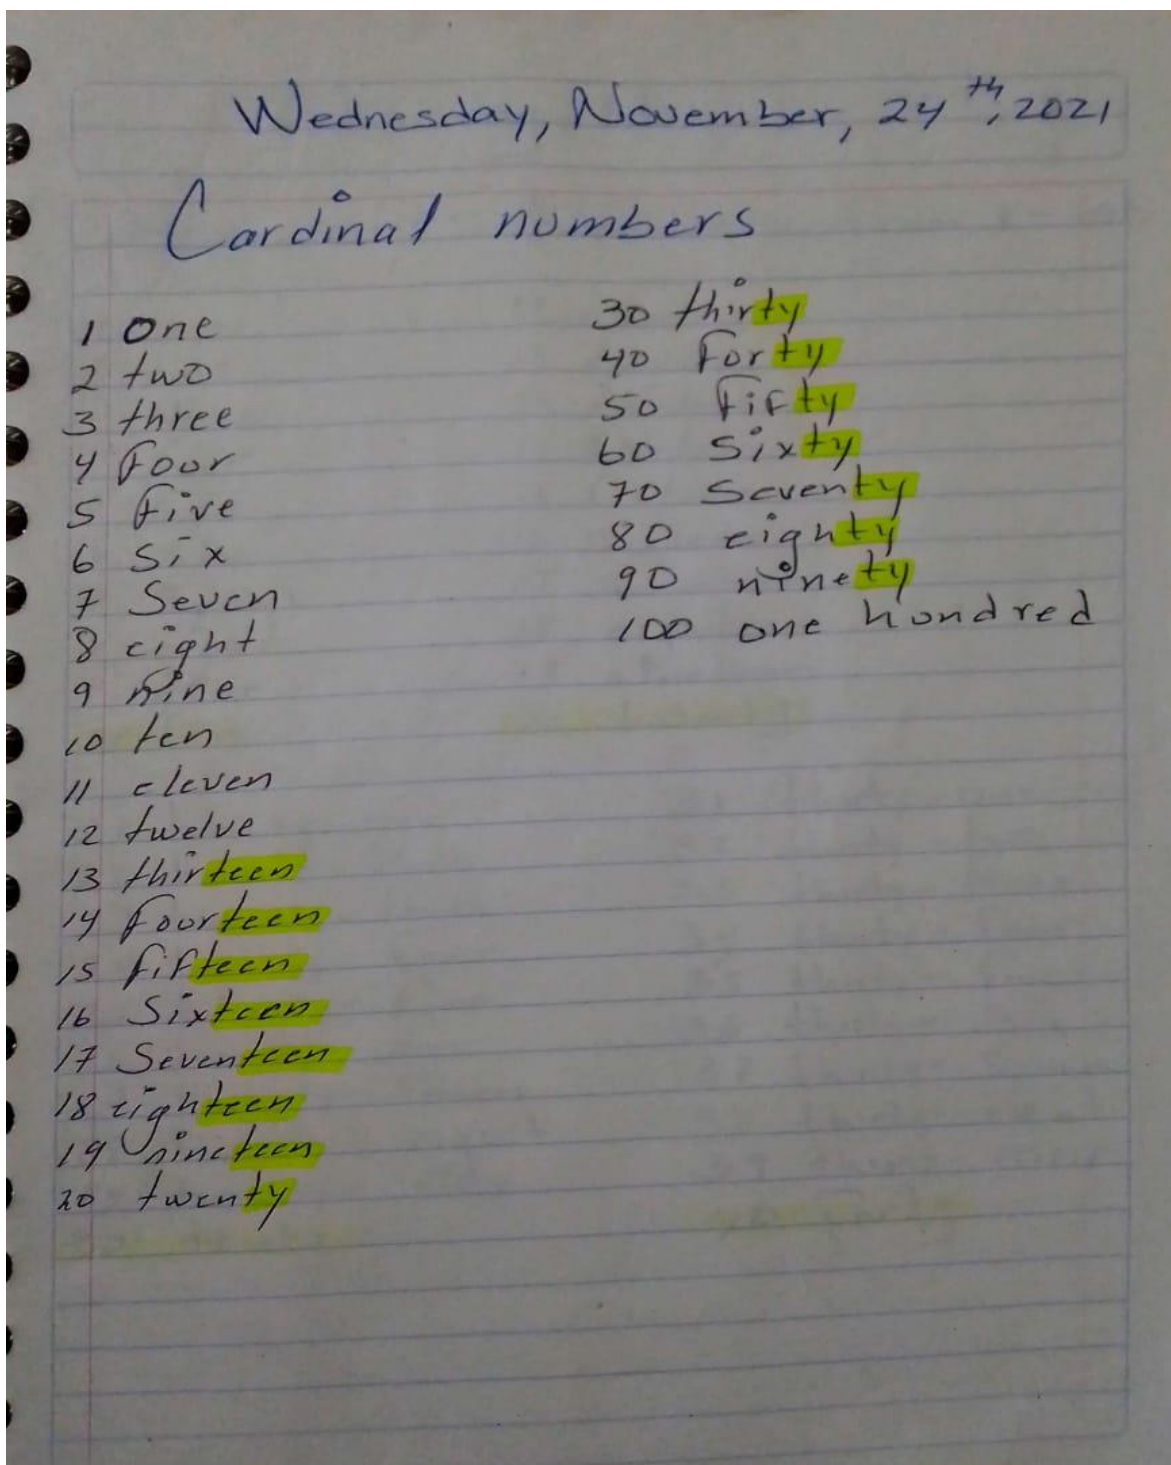 Wednesday, November, 24th, 2021
Cardinal numbers
1 one
2 two
3 three
4 four
5 five
6 six
7 Seven
8 eight
9 nine
10 ten
11 eleven
12 twelve
13 thirteen
14 fourteen
15 fifteen
16 Sixteen
17 Seventeen
18 eighteen
19 nineteen
20 twenty
30 thirty
40 forty
50 fifty
60 Sixty
70 Seventy
80 eighty
90 ninety
100 one hundred